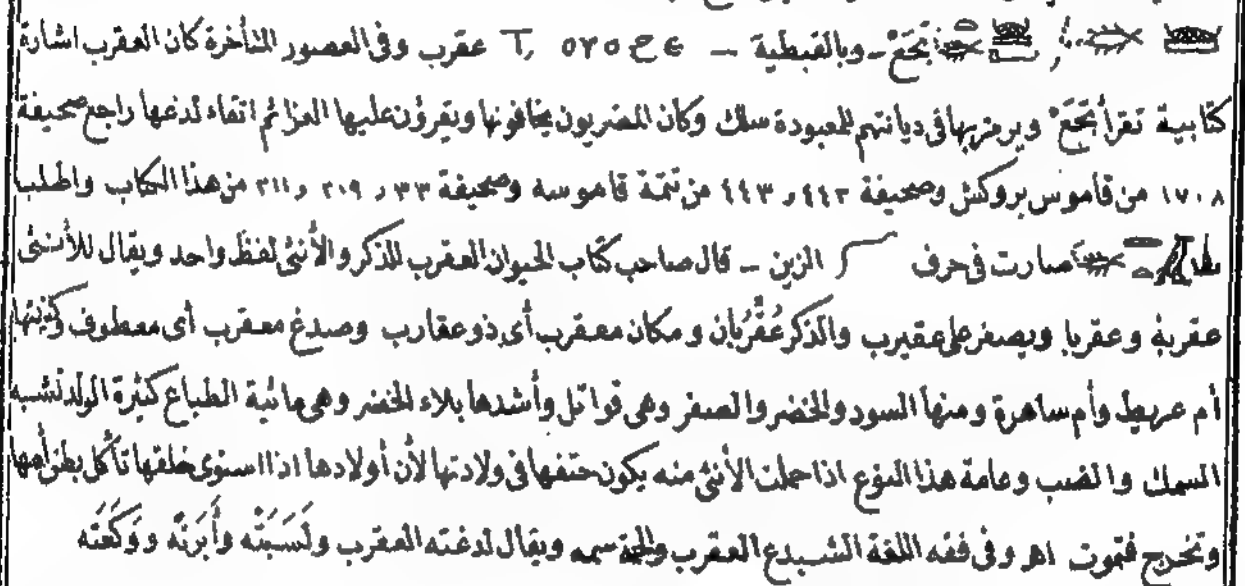 تَحَعْ - وبالقبطية - T, ογοϩε عقرب وفى العصور المتأخرة كان العقرب اشارة
كتابية تقرأ تَحَعْ ويرمز بها فى ديانتهم للمعبودة سلك وكان المصريون يخافونها ويقرؤن عليها العزائم اتقاء لدغها راجع صحيفة
١٧٠٨ من قاموس بروكش وصحيفة ٤٤٢ و ٤٤٣ من تتمة قاموسه وصحيفة ٣٣ و ٢٠٩ و ٢١١ من هذا الكتاب واطلب
صارت فى حرف الزين - قال صاحب كتاب الحيوان العقرب للذكر والأنثى لفظ واحد ويقال للأنثى
عقربة وعقربا ويصغر على عقيرب والذكر عُقْرُبان ومكان معقرب أى ذو عقارب وصدغ معقرب أى معطوف وكنيتها
أم عريط وأم ساهرة ومنها السود والخضر والصفر وهى قواتل وأشدها بلاء الخضر وهى مائية الطباع كثيرة الولد تشبه
السمك والضب وعامة هذا النوع اذا حملت الأنثى منه يكون حتفها فى ولادتها لأن أولادها اذا استوى خلقها تأكل بطن أمها
وتخرج فتموت اهـ وفى فقه اللغة الشبدع العقرب سمه ويقال لدغته العقرب ولَسَبَتْه وأَبَرَتْه ووَكَعَتْه